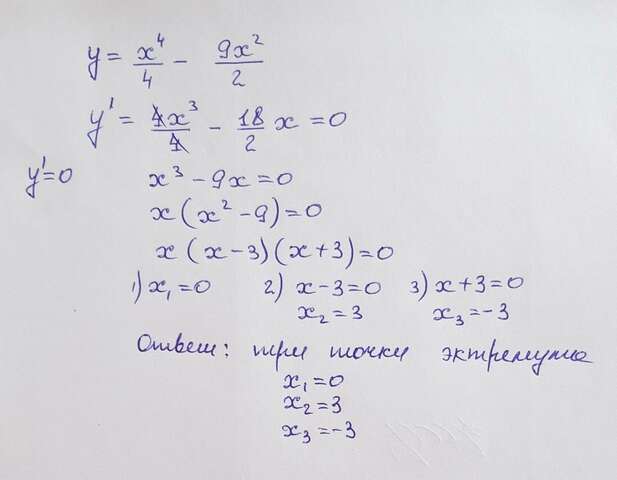 y = x⁴/4 - 9x²/2
y' = 4x³/4 - 18/2 x = 0
y'=0 x³ - 9x = 0
x(x² - 9) = 0
x(x-3)(x+3) = 0
1) x₁ = 0 2) x-3=0 3) x+3=0
x₂ = 3 x₃ = -3
Ответ: три точки эктремума
x₁ = 0
x₂ = 3
x₃ = -3